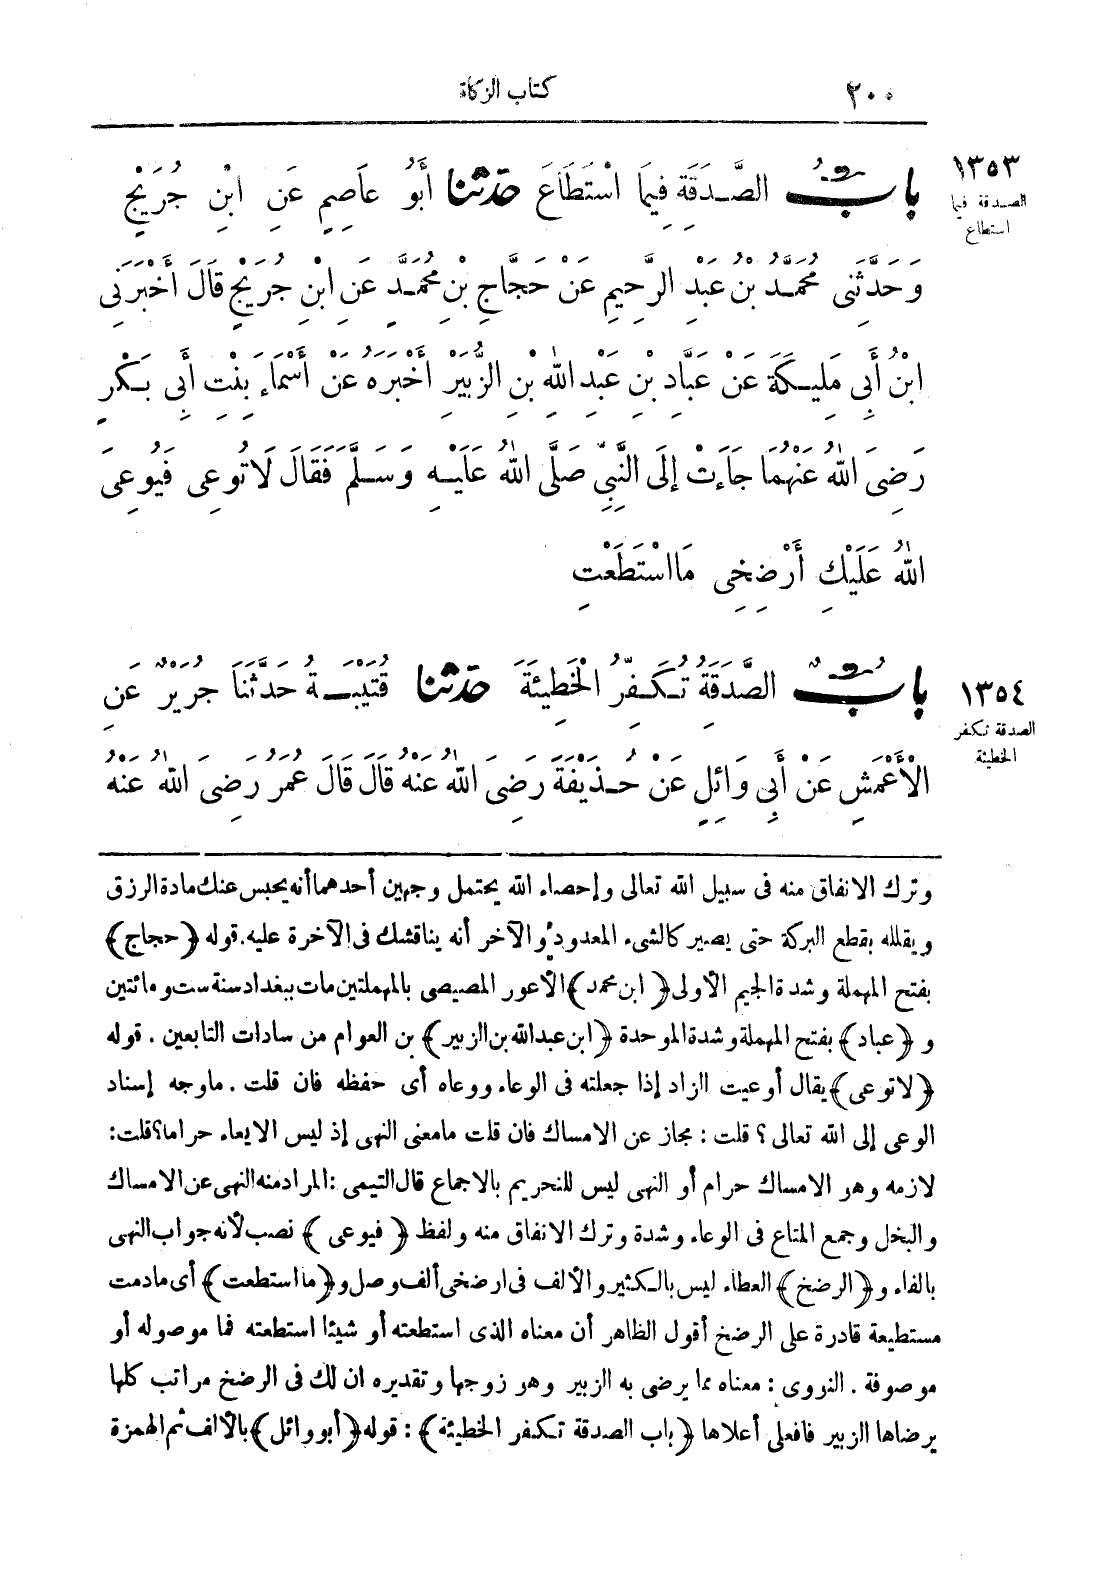 ٢٠٠ كتاب الزكاة
١٣٥٣
الصدقة فيما
استطاع
بابُ الصَّدَقَةِ فِيمَا اسْتَطَاعَ حدثنا أَبُو عَاصِمٍ عَنِ ابْنِ جُرَيْجٍ
وَحَدَّثَنِى مُحَمَّدُ بْنُ عَبْدِ الرَّحِيمِ عَنْ حَجَّاجِ بْنِ مُحَمَّدٍ عَنِ ابْنِ جُرَيْجٍ قَالَ أَخْبَرَنِى
ابْنُ أَبِى مُلَيْكَةَ عَنْ عَبَّادِ بْنِ عَبْدِ اللهِ بْنِ الزُّبَيْرِ أَخْبَرَهُ عَنْ أَسْمَاءَ بِنْتِ أَبِى بَكْرٍ
رَضِىَ اللهُ عَنْهُمَا جَاءَتْ إِلَى النَّبِىِّ صَلَّى اللهُ عَلَيْهِ وَسَلَّمَ فَقَالَ لَا تُوعِى فَيُوعِىَ
اللهُ عَلَيْكِ أَرْضِخِى مَا اسْتَطَعْتِ
١٣٥٤
الصدقة تكفر
الخطيئة
بابٌ الصَّدَقَةُ تُكَفِّرُ الْخَطِيئَةَ حدثنا قُتَيْبَةُ حَدَّثَنَا جَرِيرٌ عَنِ
الْأَعْمَشِ عَنْ أَبِى وَائِلٍ عَنْ حُذَيْفَةَ رَضِىَ اللهُ عَنْهُ قَالَ قَالَ عُمَرُ رَضِىَ اللهُ عَنْهُ
وترك الانفاق منه فى سبيل الله تعالى وإحصاء الله يحتمل وجهين أحدهما أنه يحبس عنك مادة الرزق
ويقلله بقطع البركة حتى يصير كالشىء المعدود والآخر أنه يناقشك فى الآخرة عليه. قوله ﴿حجاج﴾
بفتح المهملة وشدة الجيم الأولى ﴿ابن محمد﴾ الأعور المصيصى بالمهملتين مات ببغداد سنة ست ومائتين
و ﴿عباد﴾ بفتح المهملة وشدة الموحدة ﴿ابن عبد الله بن الزبير﴾ بن العوام من سادات التابعين . قوله
﴿لا توعى﴾ يقال أوعيت الزاد إذا جعلته فى الوعاء ووعاه أى حفظه فان قلت . ما وجه إسناد
الوعى إلى الله تعالى ؟ قلت : مجاز عن الامساك فان قلت ما معنى النهى إذ ليس الايعاء حراما؟ قلت:
لازمه وهو الامساك حرام أو النهى ليس للتحريم بالاجماع قال التيمى : المراد منه النهى عن الامساك
والبخل وجمع المتاع فى الوعاء وشدة وترك الانفاق منه ولفظ ﴿فيوعى﴾ نصب لأنه جواب النهى
بالفاء و ﴿الرضخ﴾ العطاء ليس بالكثير والألف فى ارضخى ألف وصل و﴿ما استطعت﴾ أى مادمت
مستطيعة قادرة على الرضخ أقول الظاهر أن معناه الذى استطعته أو شيئا استطعته فما موصوله أو
موصوفة . النووى : معناه مما يرضى به الزبير وهو زوجها وتقديره ان لك فى الرضخ مراتب كلها
يرضاها الزبير فافعلى أعلاها ﴿باب الصدقة تكفر الخطيئة﴾ : قوله ﴿أبو وائل﴾ بالألف ثم الهمزة